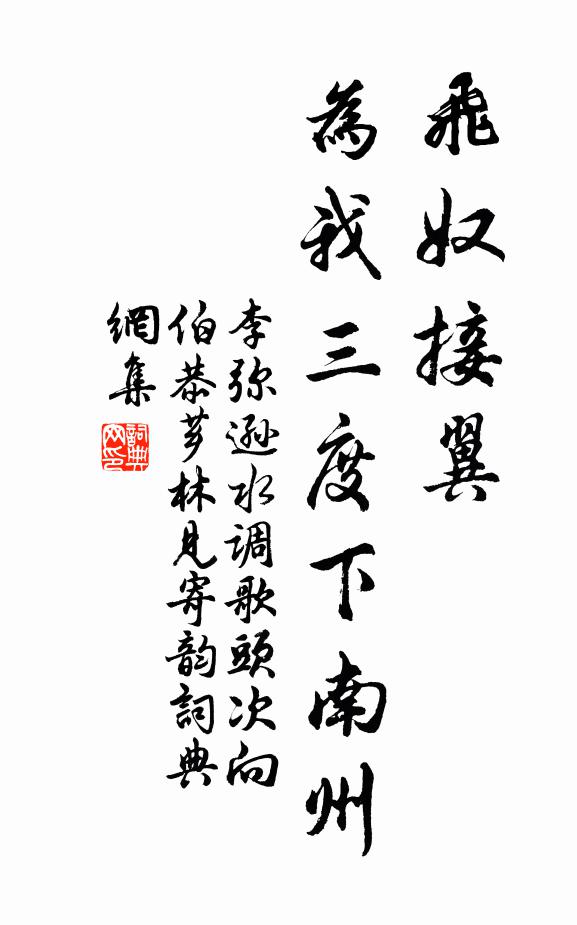 飛奴接翼
為我三度下南州
李弥遜水調歌頭次向
伯恭芗林見寄韵詞典
網集
詞典网印